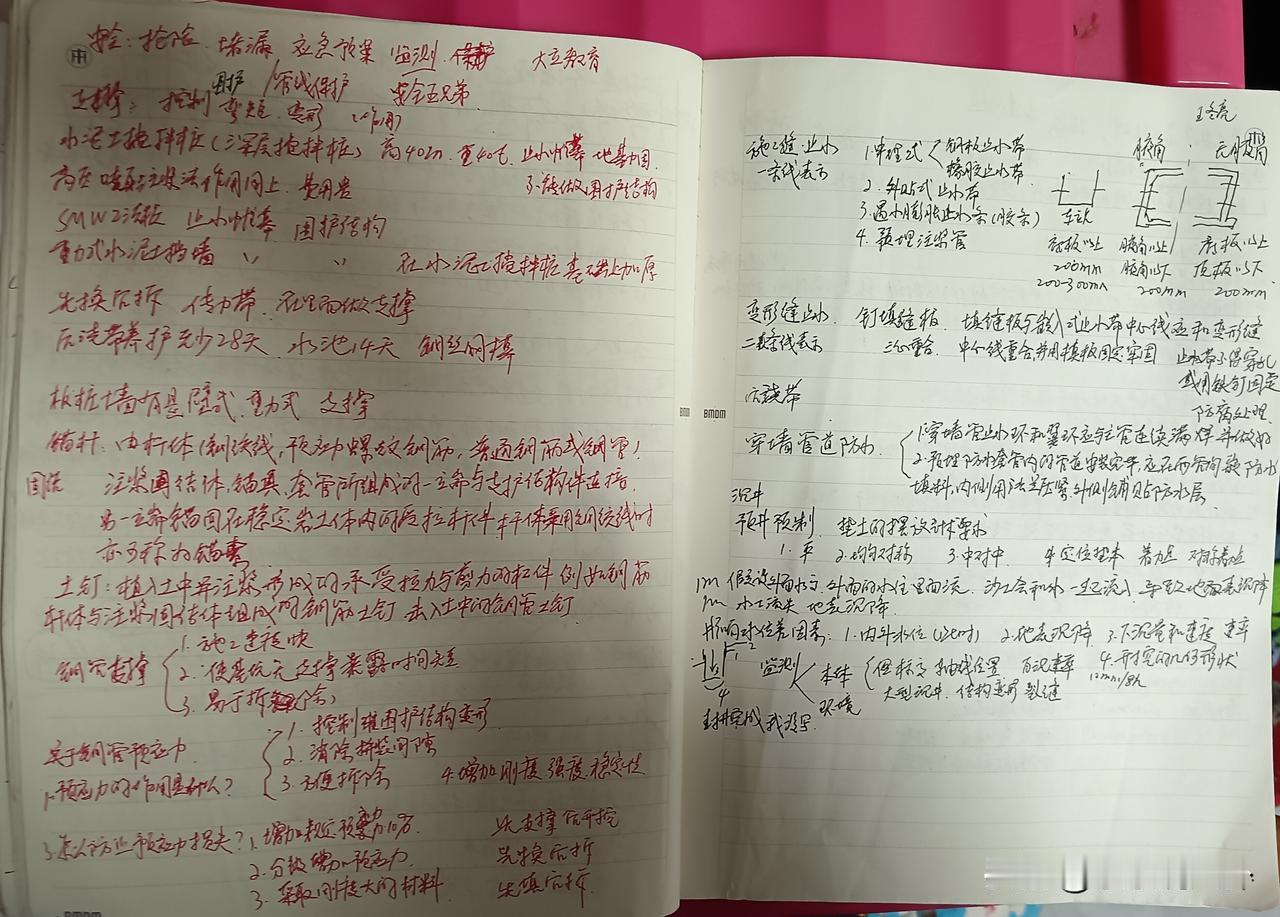 抢险 堵漏 应急预案 监测 大立教育
围护 管线保护 安全五兄弟
支撑: 控制弯矩 变形 (作用)
水泥土搅拌桩(深层搅拌桩) 高40m 重40t 止水帷幕 地基加固
高压喷射注浆法作用同上 费用贵 不能做围护结构
SMW工法桩 止水帷幕 围护结构
重力式水泥土挡墙 〃 〃 在水泥土搅拌桩基础上加厚
先换后拆 传力带 在里面做支撑
后浇带养护至少28天 水池14天 钢丝网撑
板桩墙有悬壁式 重力式 支撑
锚杆: 由杆体(钢绞线, 预应力螺纹钢筋, 普通钢筋或钢管)
固结 注浆固结体、锚具、套管所组成的一端与支护结构件连接,
另一端锚固在稳定岩土体内的受拉杆件 杆体采用钢绞线时
亦可称为锚索
土钉: 植入土中并注浆形成的承受拉力与剪力的杆件 例如钢筋
杆体与注浆固结体组成的钢筋土钉 击入土中的钢管土钉
钢管支撑
1. 施工速度快
2. 使基坑无支撑暴露时间短
3. 易于拆除
关于钢管预应力
1. 预应力的作用是什么?
1. 控制围护结构变形
2. 消除拼装间隙
3. 方便拆除 4. 增加刚度 强度 稳定性
3. 怎么防止预应力损失? 1. 增加规定预应力10% 先支撑后开挖
2. 分级增加预应力 先换后拆
3. 采取刚度大的材料 先填后拆
BMDM
王冬亮
施工缝止水
一条线表示
1. 中埋式 钢板止水带
橡胶止水带
2. 外贴式止水带
3. 遇水膨胀止水条(胶条)
4. 预埋注浆管
腋角 无腋角
车站
底板以上 腋角以上 底板以上
200mm 腋角以下 顶板以下
200-300mm 200mm 200mm
变形缝止水 钉填缝板 填缝板与嵌入式止水带中心线应和变形缝
二条线表示 三心重合 中心线重合并用模板固定牢固 止水带不得穿孔
或用铁钉固定
防腐处理
BMDM
后浇带
穿墙管道防水
1. 穿墙管止水环和翼环应与主管连续满焊并做好
2. 预埋防水套管内的管道安装完毕, 应在两管间嵌防水
填料, 内侧用法兰压紧 外侧铺贴防水层
沉井
预井预制 垫土的摆设计要求
1. 平 2. 均匀对称 3. 中对中 4. 定位垫木 着力点 对称着点
1m 假设外面水位 外面的水往里面流 沙土会和水一起流入 导致地面沉降
水土流失 地表沉降
影响水位差因素: 1. 内外水位 2. 地表沉降 3. 下沉量和速度 速率
4. 开挖的几何形状
监测 本体 但标高 轴线位置 下沉速率
大型沉井 结构变形 裂缝
环境